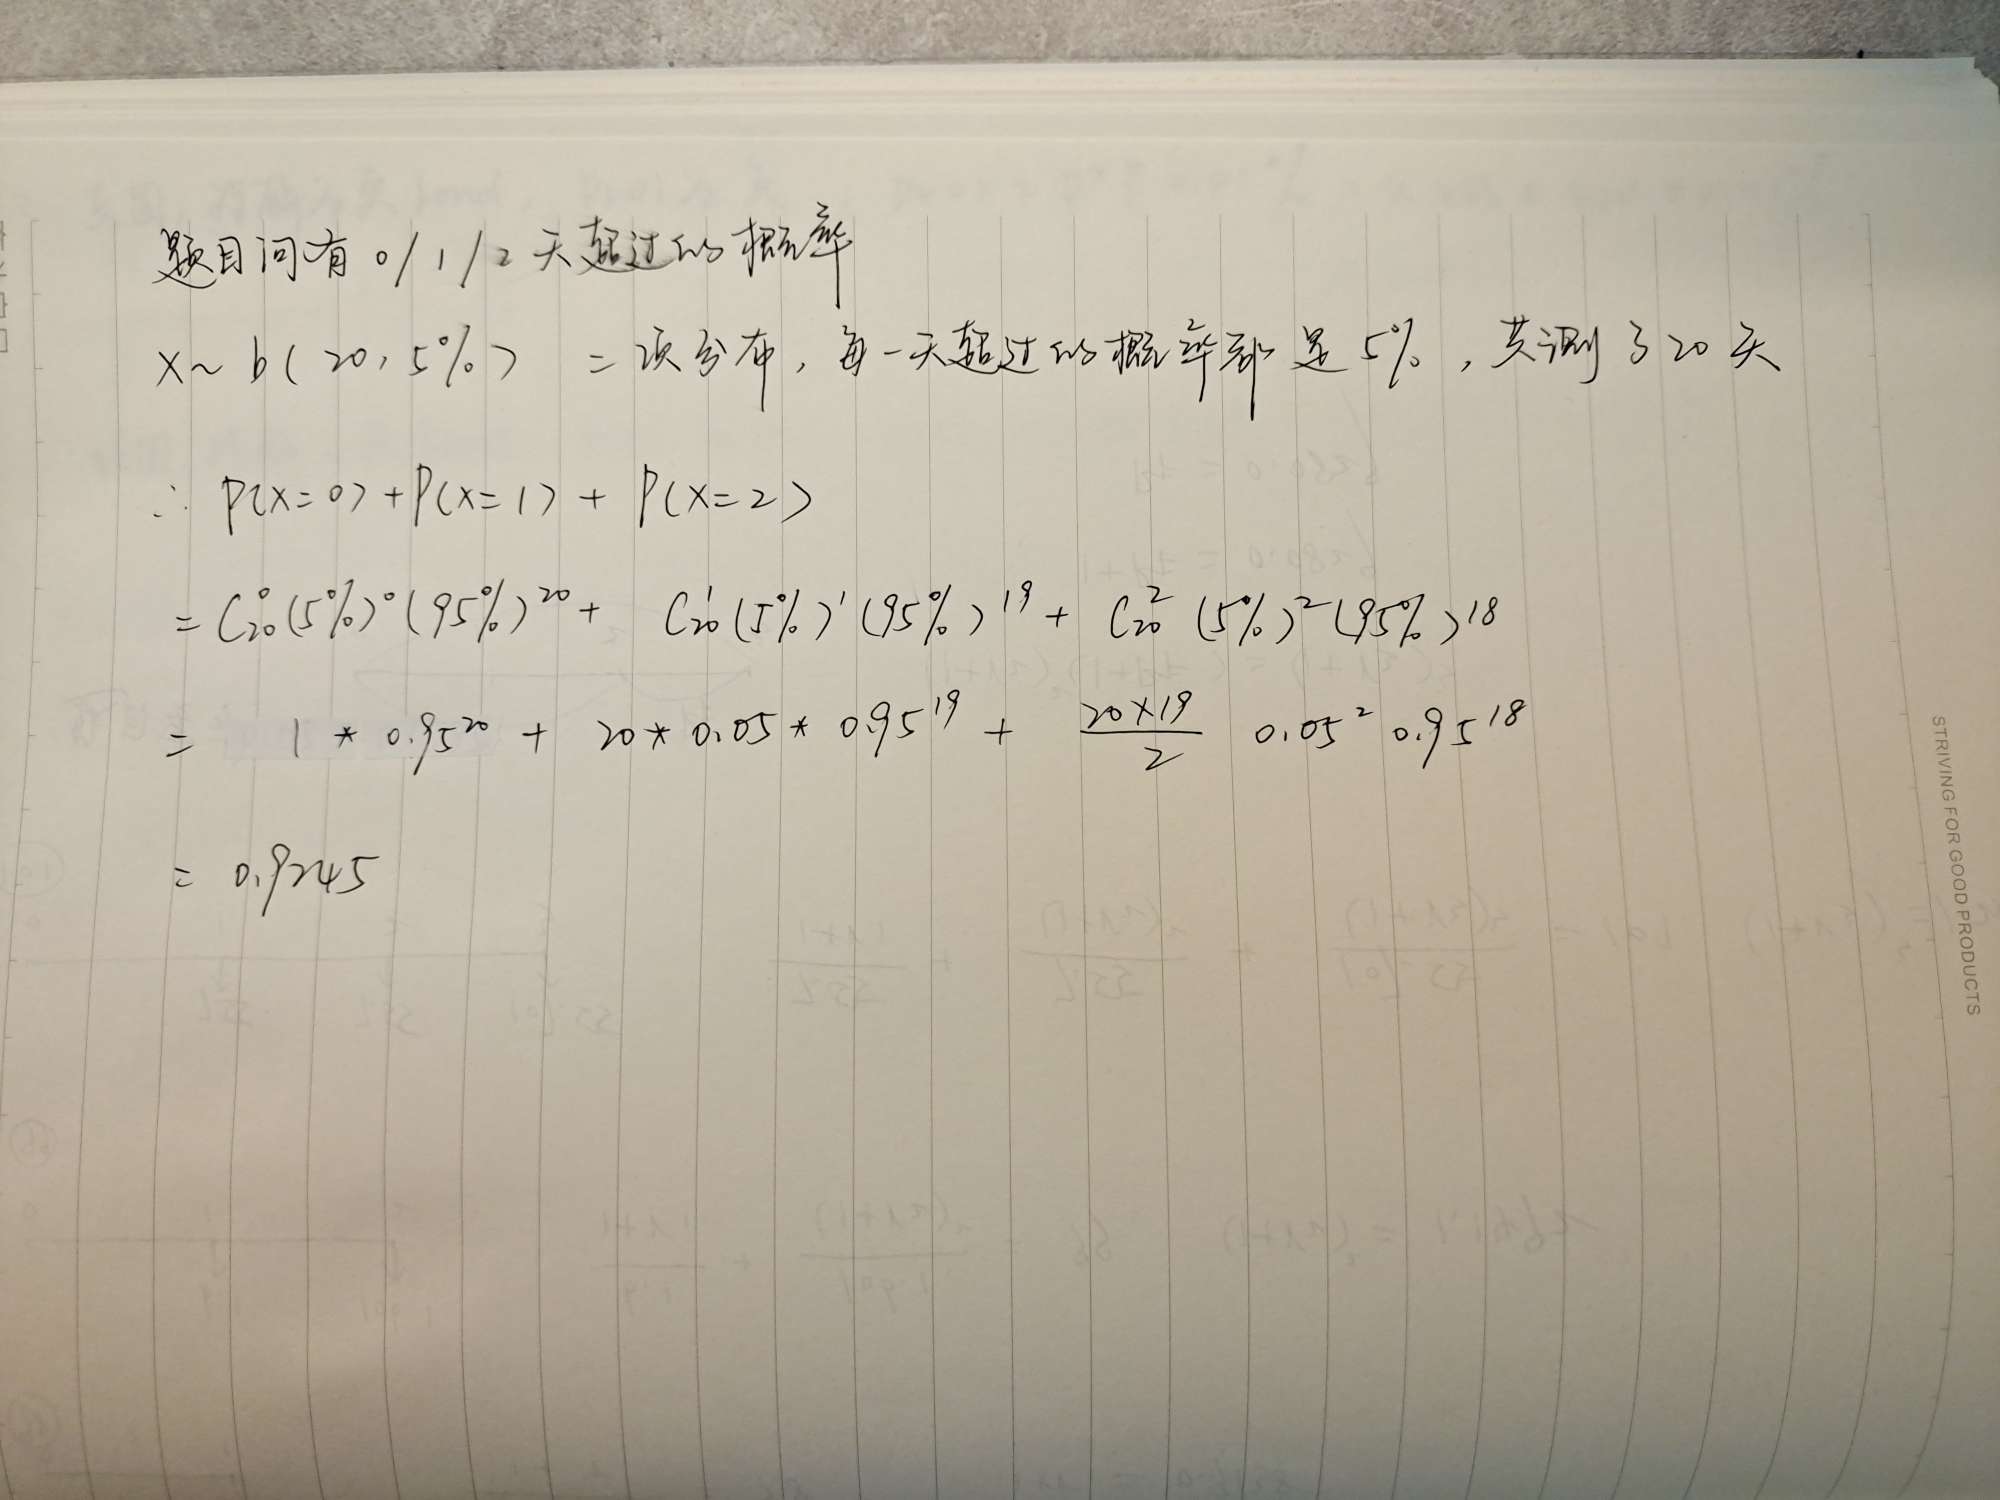 题目问有0/1/2天超过的概率
X~b(20,5%) 二项分布,每一天超过的概率都是5%,共测了20天
∴ P(X=0)+P(X=1)+P(X=2)
= C₂₀⁰(5%)⁰(95%)²⁰ + C₂₀¹(5%)¹(95%)¹⁹ + C₂₀²(5%)²(95%)¹⁸
= 1 * 0.95²⁰ + 20 * 0.05 * 0.95¹⁹ + 20×19/2 0.05² 0.95¹⁸
= 0.9245
STRIVING FOR GOOD PRODUCTS